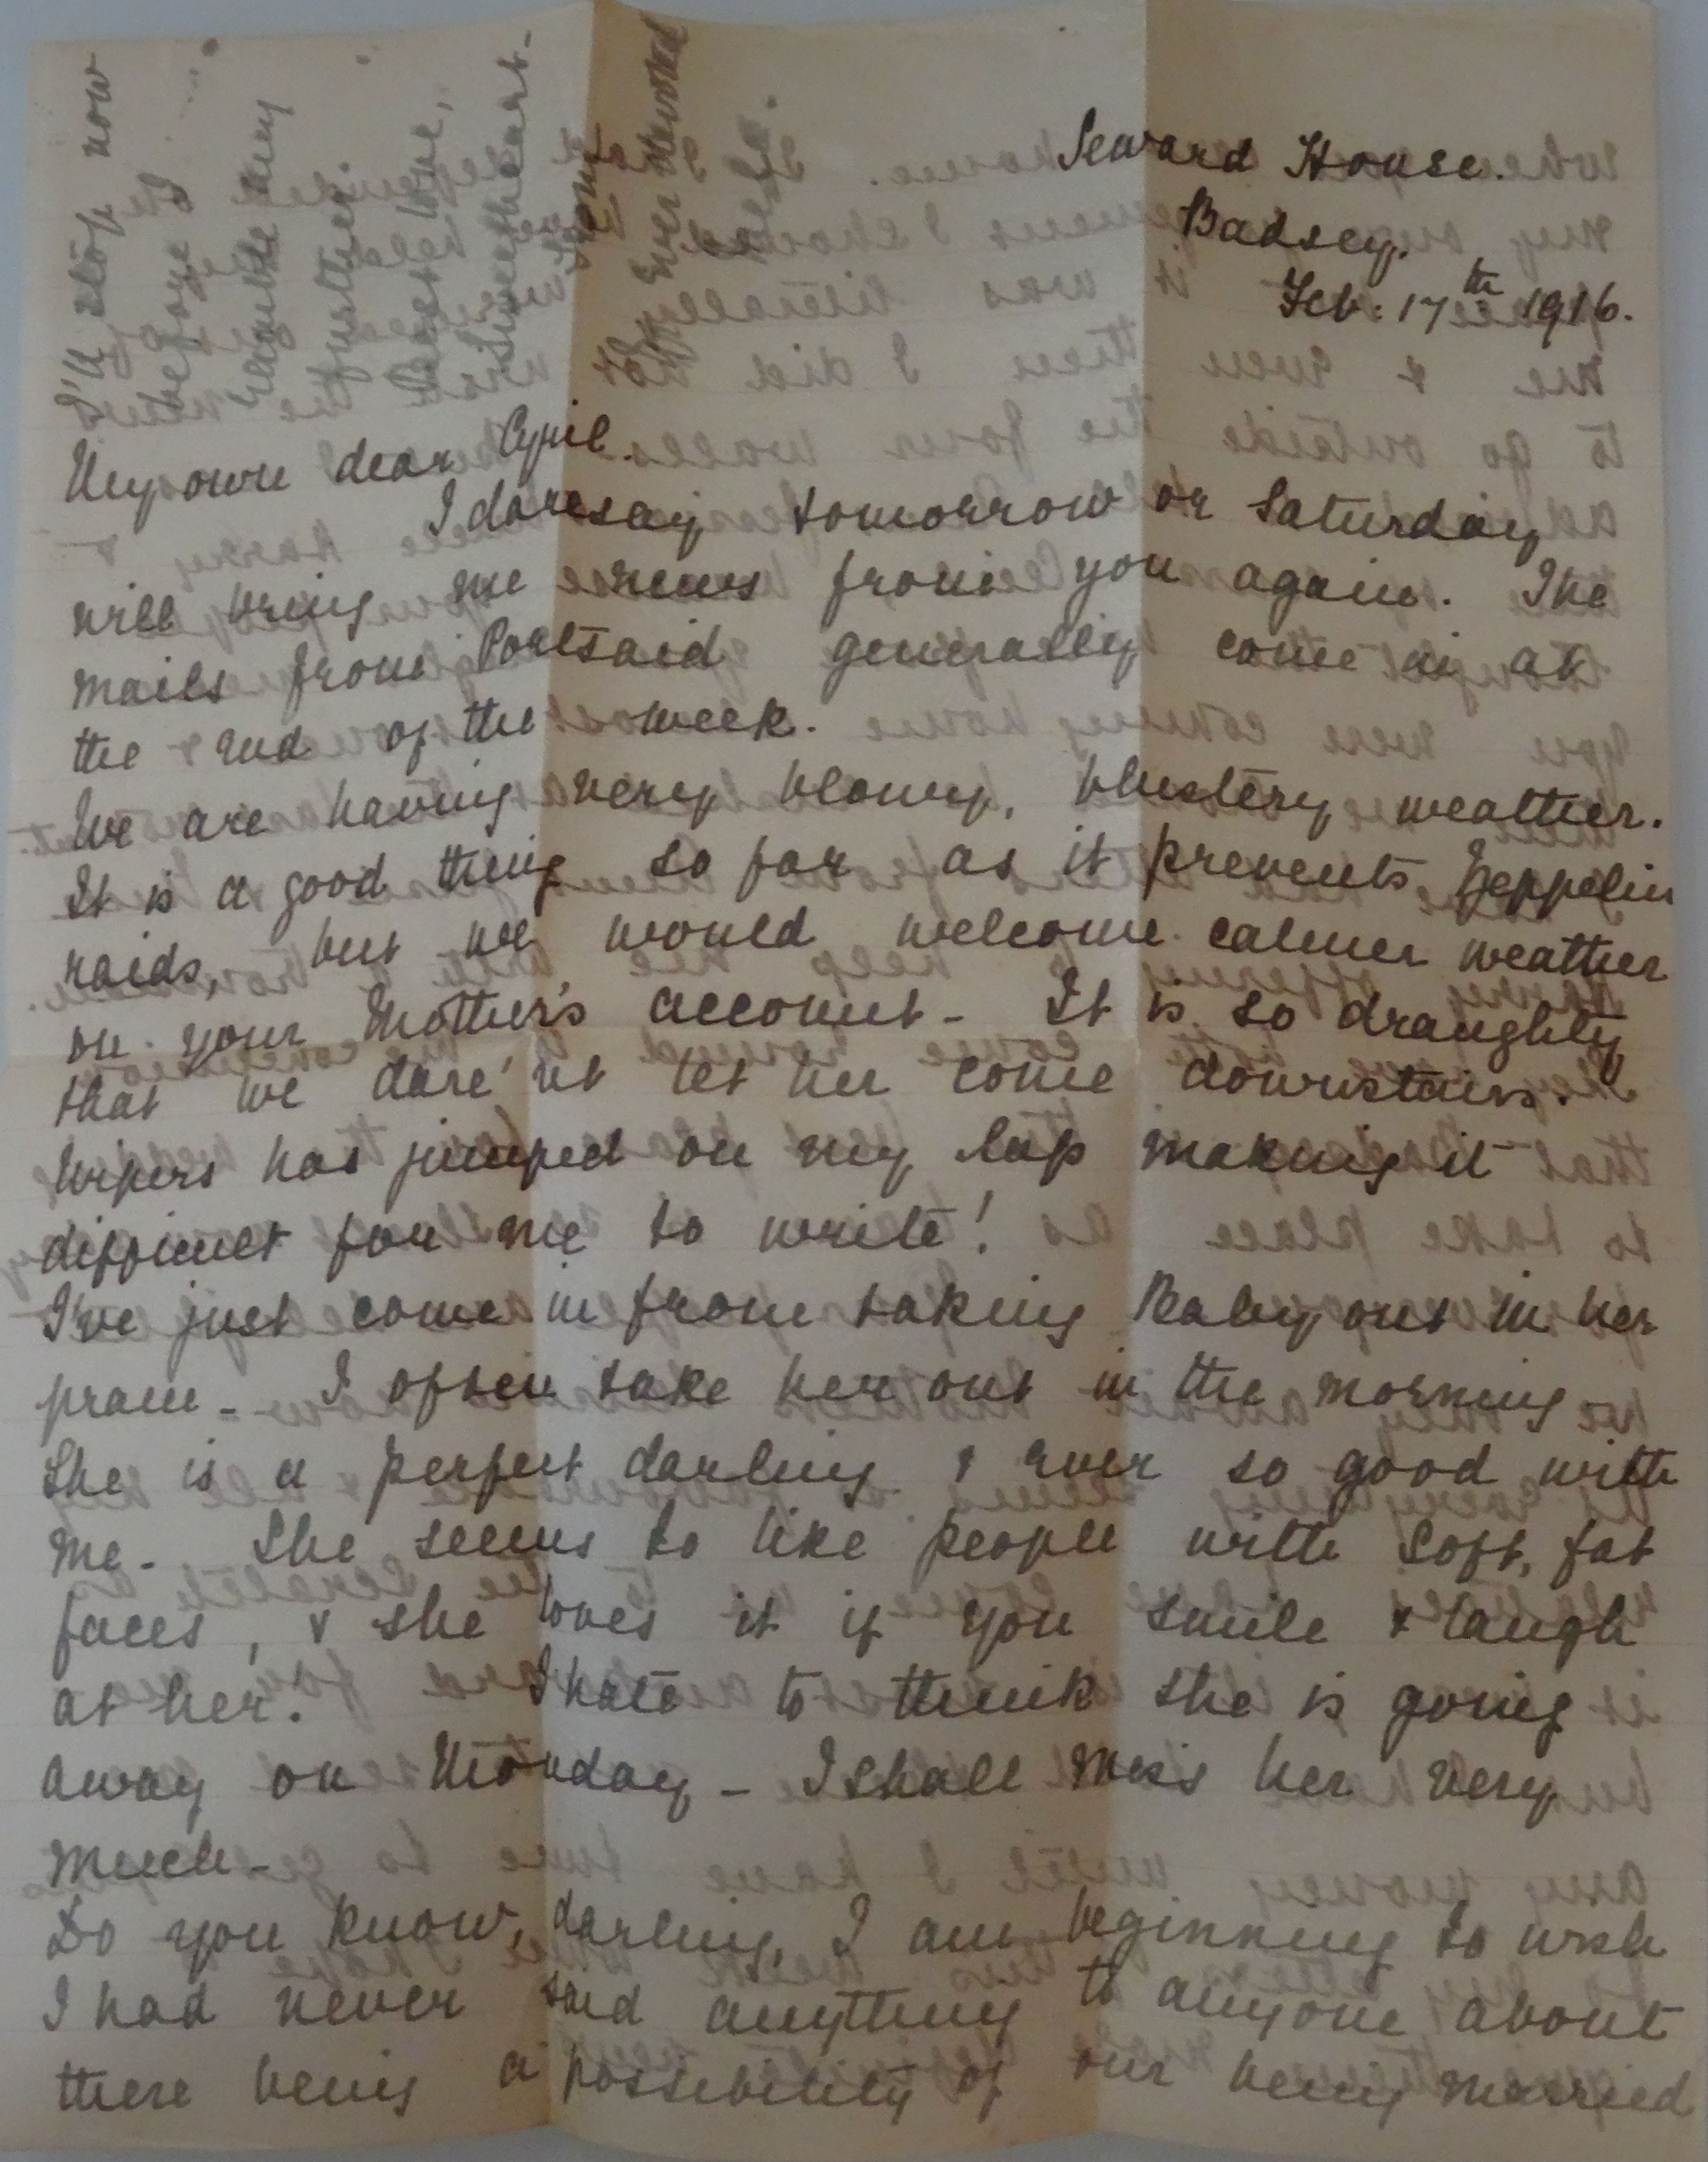 Seward House.
Badsey.
Feb: 17th 1916.
My own dear Cyril.
I daresay tomorrow or Saturday
will bring me news from you again. The
mails from Portsaid generally come in at
the end of the week.
We are having very blowy, blustery weather.
It is a good thing so far as it prevents Zeppelin
raids, but we would welcome calmer weather
on your Mother's account - It is so draughty
that we dare'nt let her come downstairs.
Wipers has jumped on my lap making it
difficult for me to write!
I've just come in from taking Baby out in her
pram - I often take her out in the morning
She is a perfect darling & ever so good with
me - She seems to like people with soft, fat
faces, & she loves it if you smile & laugh
at her. I hate to think she is going
away on Monday - I shall miss her very
much -
Do you know, darling, I am beginning to wish
I had never said anything to anyone about
there being a possibility of our being married
I'll stop now
before I
ramble any
further.
Dearest love,
Sweetheart -
from
Yr. Ever devoted